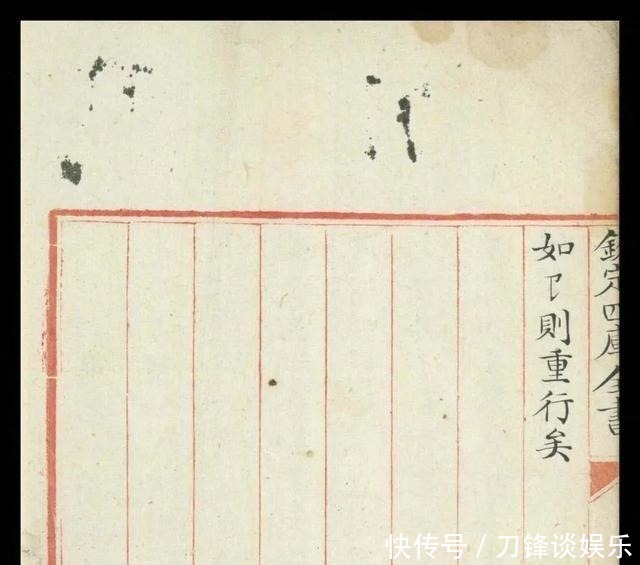 欽定四庫全書
如則重行矣
快传号 / 刀锋谈娱乐